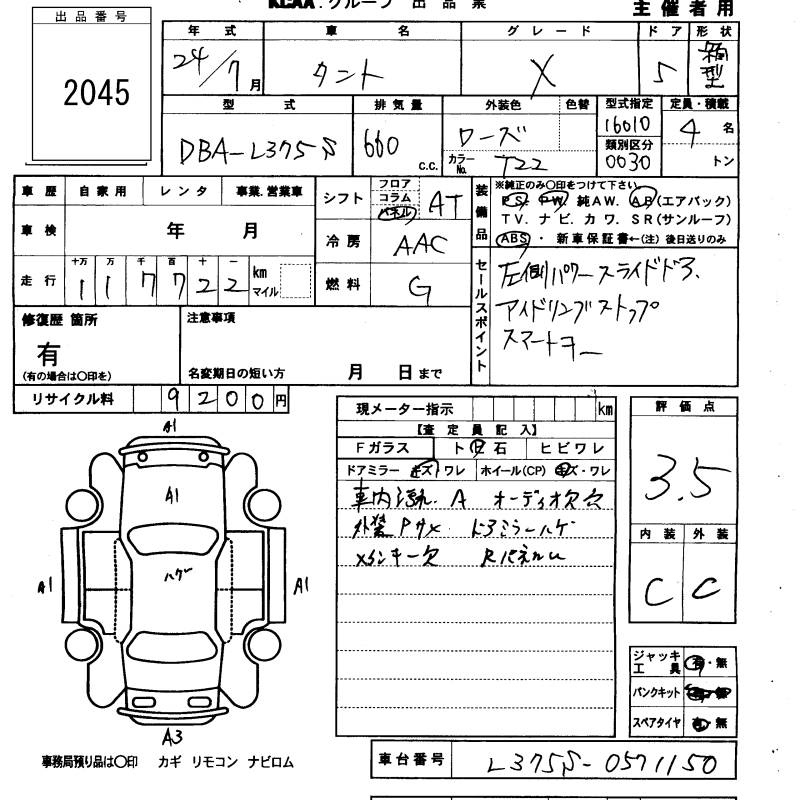 KCAA.グループ 出品票
主催者用
出品番号
2045
年式 車名 グレード ドア 形状
24/7月 タント X 5 箱型
型式 排気量 外装色 色替 型式指定 定員・積載
DBA-L375S 660 C.C. ローズ 16010 4名
カラーNo. T22 類別区分 0030 トン
車歴 自家用 レンタ 事業.営業車
車検 年 月
走行 十万 万 千 百 十 一
1 1 7 7 2 2 km マイル
シフト フロア コラム パネル AT
冷房 AAC
燃料 G
装備品
※純正のみ〇印をつけて下さい
PS PW 純AW. AB(エアバック)
TV. ナビ. カワ. SR(サンルーフ)
ABS・新車保証書←(注)後日送りのみ
セールスポイント
左側パワースライドドア.
アイドリングストップ
スマートキー
修復歴 箇所
有
(有の場合は〇印を)
注意事項
名変期日の短い方 月 日まで
リサイクル料 9200円
現メーター指示 km
【査定員記入】
Fガラス ト 石 ヒビワレ
ドアミラー キズ ワレ ホイール(CP) キズ・ワレ
車内汚れ. A オーディオ欠
外装 Pサメ ドアミラーハゲ
メインキー欠 Rパネル
評価点
3.5
内装 外装
C C
A1
A1
ハゲ
A1
A1
A3
ジャッキ工具 有・無
パンクキット
スペアタイヤ ・無
事務局預り品は〇印 カギ リモコン ナビロム
車台番号 L375S-0571150